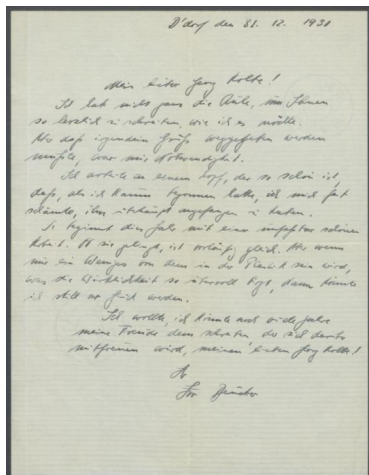 D'dorf den 31. 12. 1930
Mein lieber Georg Kolbe!
Ich hab nicht ganz die Ruhe, um Ihnen
so herzlich zu schreiben, wie ich es möchte.
Aber daß irgendein Gruß weggegeben werden
mußte, war mir Notwendigkeit.
Ich arbeite an einem Kopf, der so schön ist,
daß, als ich kaum begonnen hatte, ich mich fast
schämte, ihn überhaupt angefangen zu haben.
So beginnt das Jahr mit einer schönen
Arbeit. Ob sie gelingt, ist vorläufig gleich. Aber wenn
nur ein Weniges von dem in der Plastik sein wird,
was die Wirklichkeit so übervoll birgt, dann könnte
ich still vor Glück werden.
Ich wollte, ich könnte noch viele Jahre
meine Freude dem schreiben, der sich darüber
mitfreuen wird, meinem lieben Georg Kolbe!
Ihr